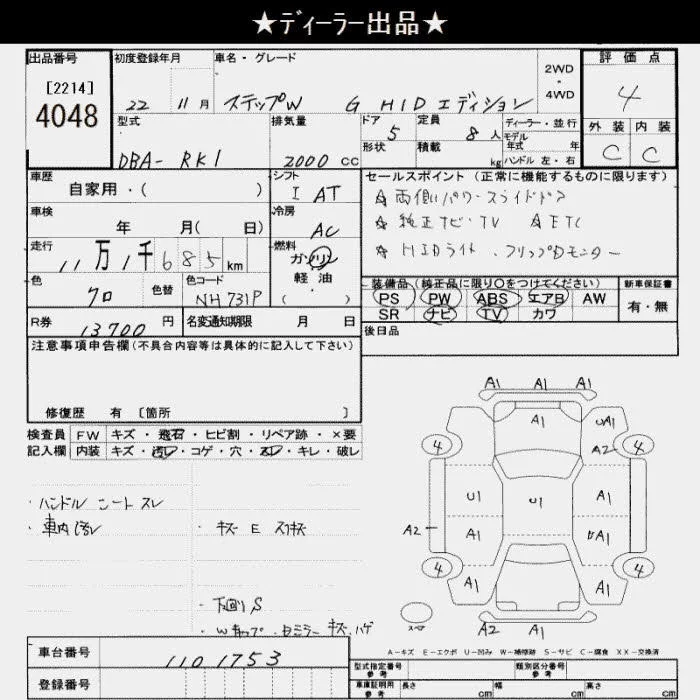 ★ディーラー出品★
出品番号 初度登録年月 車名・グレード 2WD ・ 4WD 評価点
[2214]
4048
22 11月 ステップW G HIDエディション 4
型式 排気量 ドア 5 定員 8人 ディーラー・並行 外装 内装
形状 積載 kg モデル年式 年 ハンドル 左・右
DBA-RK1 2000cc C C
車歴 シフト セールスポイント(正常に機能するものに限ります)
自家用・( ) I AT
☆両側パワースライドドア
車検 冷房
☆純正ナビ・TV ☆ETC
年 月( 日) AC
☆HIDライト、フリップDモニター
走行 11万1千685km 燃料 ガソリン 軽油 ・( )
色 クロ 色替 色コード NH731P
装備品(純正品に限り○をつけてください) 新車保証書
PS PW ABS エアB AW 有・無
SR ナビ TV カワ
R券 13700円 名変通知期限 月 日
後日品
注意事項申告欄(不具合内容等は具体的に記入して下さい)
修復歴 有 〔箇所 〕
検査員 FW キズ・飛石・ヒビ割・リペア跡・×要
記入欄 内装 キズ・汚レ・コゲ・穴・スレ・キレ・破レ
・ハンドル シート スレ
・車内汚レ ・キズ E スリキズ
・下回りS
・Wキャップ・Dミラー キズ、ハゲ
A1 A1 A1
A1 UA1
4 A2 4
U1 U1 A1
A2 A1 A1
4 4
A1 A1 A1
スペア A2 A1
A-キズ E-エクボ U-凹み W-補修跡 S-サビ C-腐食 XX-交換済
車台番号 1101753
登録番号
型式指定番号 参考 類別区分番号 参考
車庫証明用 参考 長さ cm 幅 cm 高さ cm